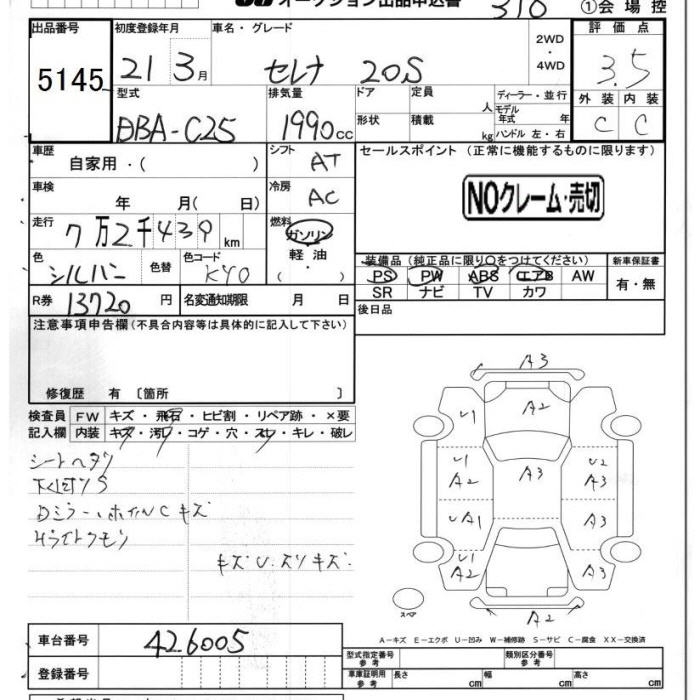 オークション出品申込書
310
①会場控
出品番号 初度登録年月 車名・グレード 評価点
5145 21 3月 セレナ 20S 2WD・4WD 3.5
型式 排気量 ドア 定員 人 ディーラー・並行 外装 内装
DBA-C25 1990cc 形状 積載 kg モデル年式 年 ハンドル 左・右 C C
車歴 自家用・( ) シフト AT セールスポイント (正常に機能するものに限ります)
車検 年 月( 日) 冷房 AC NOクレーム・売切
走行 7万2千439km 燃料 ガソリン・軽油・
装備品 (純正品に限り○をつけてください) 新車保証書
色 シルバー 色替 色コード KY0 PS PW ABS エアB AW 有・無
SR ナビ TV カワ
R券 13720円 名変通知期限 月 日
後日品
注意事項申告欄(不具合内容等は具体的に記入して下さい)
修復歴 有 〔箇所 〕
検査員 FW キズ・飛石・ヒビ割・リペア跡・×要
記入欄 内装 キズ・汚レ・コゲ・穴・スレ・キレ・破レ
シートヘタリ
下回りS
Dミラー、ホイルCキズ
Hライトクモリ
キズU.スリキズ.
A3
A2
U1 U1
U1 A2 A3 U2 A3
UA1 A3
U1 A2 A3
スペア
A2
A-キズ E-エクボ U-凹み W-補修跡 S-サビ C-腐食 XX-交換済
車台番号 426005
型式指定番号 参考 類別区分番号 参考
登録番号
車庫証明用 参考 長さ cm 幅 cm 高さ cm